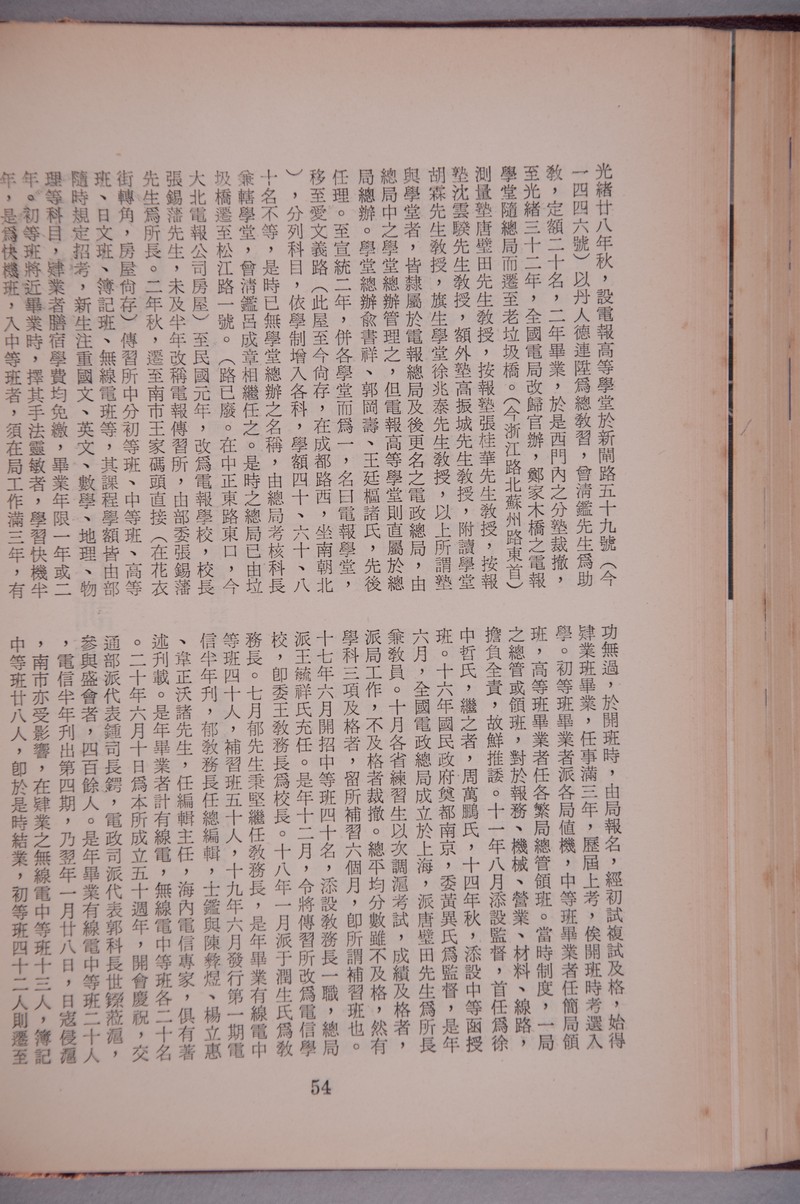 光緒廿八年秋，設電報高等學堂於新閘路五十九號（今
一四四六號）以丹人德連陞爲總敎習，曾淸鑑先生爲助
敎，定額二十名，二年畢業，於是西門內之分塾裁撤，
至光緒三十二年，全國電局改歸官辦，鄭家木橋之電報
學堂隨總局而遷至老垃圾橋。（今浙江路北蘇州路東首）
測量塾唐璧田先生敎授，按報塾張桂華先生敎授，按報
塾沈雲騤先生敎授，額外塾高振城先生敎授，附讀學堂
胡霖先生敎授，旗生學堂徐兆泰先生敎授，以上所謂塾
與學堂者，皆隸屬於電報總局及後更名之電政總局，由
總局中之學堂總辦管理之，但電報高等學堂則直屬於總
局總辦。學堂總辦兪書祥、郭岡壽、王廷樞諸氏，先後
任理。至宣統二年，併各學堂而爲一，名曰電報學堂，
移至愛文義路（此屋至今尙存，在成都路西，坐南朝北
），分列科目，依學制增入各科，學額四十、六十、八
十名不等，是時已無學堂總辦之名稱，由總局考核科長
兼轄學堂，曾淸鑑呂成章相繼任之。是時之總局已由垃
圾橋遷至松江路一號。（路已廢。在中正東路東口，今
大北電報公司房屋）至民國元年，改爲電報學校，校長
張錫藩先生，未及半年改稱電報傳習所，由部委張錫藩
先生爲所長。二年秋，遷至南市王家碼頭直接（在花衣
街轉角，房屋尙存）傳習所中分初等班、中等班、高等
班、日文班、簿記班、無線電班等，其課程學額皆由部
隨時規定招考，新生注重國文、英文、數學、地理、物
理等科目，肄業者膳宿學費均免繳，畢業年限一年或二
年。初等班將近畢業時，擇其手法靈敏者，學習快機半
年，是爲快機班，入中等班者，須在局工作滿三年，有
功無過，於開班時，由局報名，經初試複試及格，始得
肄業班畢業，任事滿三年，歷屆上考，俟開班時考選入
學。初等班畢業者派各局值機，中等班畢業者任簡局領
班，高等班畢業者任各繁局總管領班。當時制度，一局
之總管或領班，對於報務、機械、營業、材料、線路，
擔負全責，故鮮推諉。十一年八月添設監督，首任爲徐
中哲氏，繼之者，周萬鵬氏，十四年秋，添設中等函授
班。十六年國民政府奠都南京，委黃異氏爲監督，是年
六月，全國電政總局成立於上海，派唐璧田先生爲所長
兼敎員。十月各省練習生以次調滬考試，成績及格者，
派局工作，不及格者裁撤。總平均分數雖不及格，然有
學科三項及格者，留所補習六個月，卽所謂補習班也。
十七年六月開招中等班四十名，添設敎務長一職，總局
派王毓祥氏充任。是年十二月，令將傳習所改爲電信學
校，卽委王敎務長爲校長。十八年一月派于潤生氏爲敎
務長。七月郁先生秉堅繼任敎務長，是年畢業有線電中
等班四十人，補習班五十人，十九年六月發行第一期電
信半年刊，郁敎務長任總編輯，士鑑與陳彝焜、楊立惠
、韋正沃諸先生，任編輯主任，海內電信專家，俱有著
述刊載。是年畢業者計有線電，無線電中等班各二十名
。二十年六月十日爲本所成立五十週年，開會慶祝，交
通部派代表鍾司長鍔，電政司派代表郭科長世鐩蒞滬，
參與盛會者，四百餘人。是年畢業有線電中等班二十人
，電信半年刊出第四期，乃翌年一月廿八日，日寇侵滬
，南市亦受影響，在肄業之無線電中等班十三人，簿記
中等班廿八人，卽於是時結業，初等班四十二人則遷至
54